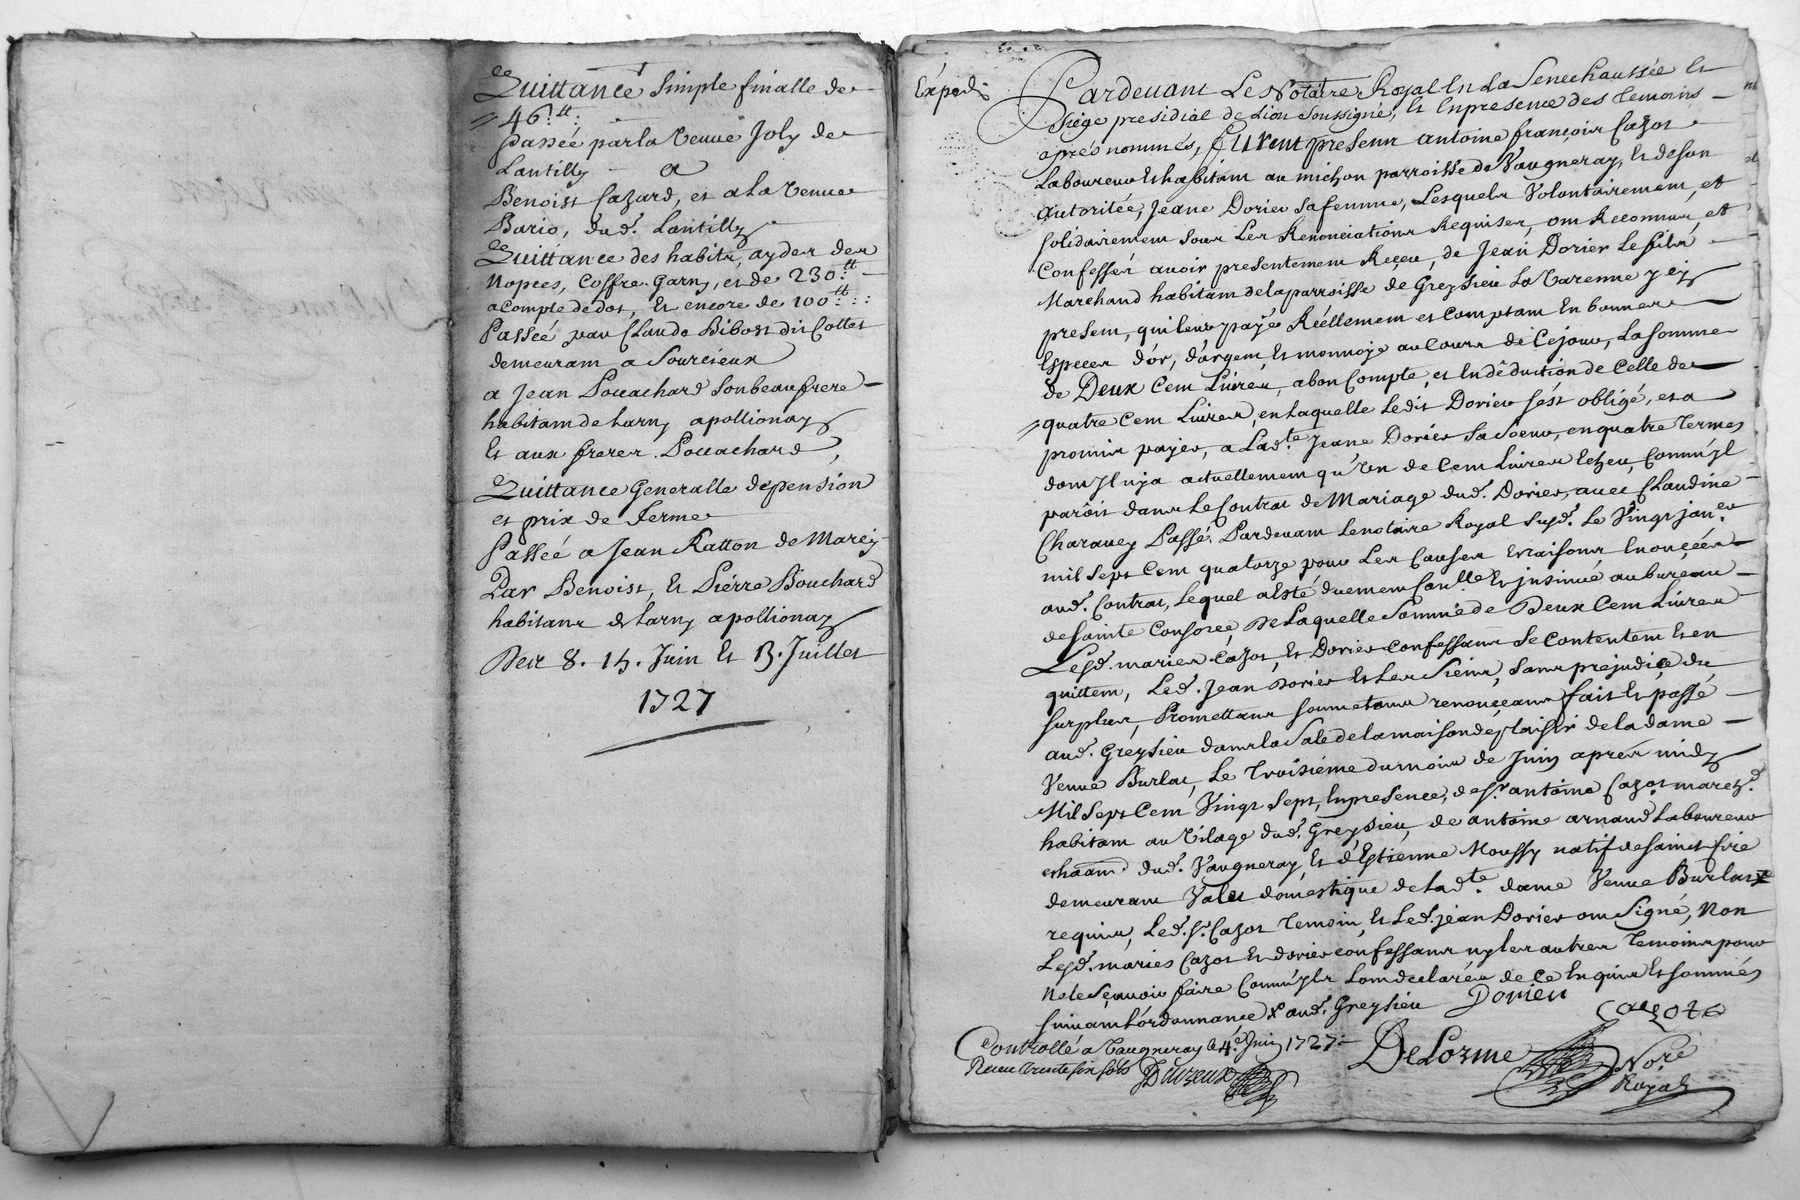 Quittance simple finalle de
46.tt.
passée par la veuve Joly de
Lantilly a
Benoist Cazard, et a la veuve
Bario, dud. Lantilly
Quittance des habits, aydes des
nopces, coffre garny, et de 230.tt
acompte de dot, Et encore de 100.tt
Passée par Claude Bibost dit Collet
demeurant a Sourcieux
a Jean Pouachard son beaufrere
habitant de Larny apollionay
Et aux freres Pouachard,
Quittance Generalle de pension
et prix de ferme
Passée a Jean Ratton de Marcy
Par Benoist, Et Piérre Bouchard
habitans de Larny apollionay
Des 8. 15. Juin Et 13. Juillet
1727
Expedié
Pardevant Le Notaire Royal En La Senechaussée Et
Siége presidial de Lion Soussigné, Et En presence des Temoins
aprés nommés, furent presens antoine françois Cazot
Laboureur Et habitant au michon parroisse de Vaugneray, Et de son
autoritée, Jeane Dorier sa femme, Lesquels Volontairement, et
solidairement sous Les Renonciations Requises, ont Reconnu, et
Confessér avoir presentement Reçeu, de Jean Dorier Le fils
Marchand habitant de la parroisse de Greysieu La Varenne y cy
present, qui leur paye Réellement et Comptant En bonnes
Especes d'or, d'argent, Et monnoye au Cours de Ce jour, La somme
de Deux Cent Livres, a bon Compte, et En déduction de Celle de
quatre Cent Livres, en Laquelle Ledit Dorier s'ést obligé, et a
promis payer, a Lad.te Jeane Dorier sa Soeur, en quatre Termes
dont Il n'y a actuellement qu'Un de Cent Livres Echeu, Comm'Jl
parôit dans Le Contrat de Mariage dud. Dorier, avec Claudine
Charavey Passé Pardevant Le notaire Royal Susd. Le Vingt janer
mil Sept Cent quatorze pour Les Causes Et raisons Enoncées
aud. Contrat, Lequel a Esté duement Conllé Et insinué au bureau
de Sainte Consorce De Laquelle Somme de Deux Cent Livres
Lesd. maries Cazot, Et Dorier confessans Se Contentent Et en
quittent, Led. Jean Dorier Et Les Siens, Sans prejudice du
surplus, Promettans soumetans renonçeans fait Et passé
aud. Gréysieu dans la Sale de la maison de plaisir de la dame
Veuve Burlat, Le Troisiéme du mois de Juin aprés midy
Mil Sept Cent Vingt Sept, En presence, de Sr. antoine Cazot march.d
habitant au Vilage dud. Greysieu, de antoine arnaud Laboureur
et haant dud. Vaugneray, Et d'Estienne Moussy natif de Saint
demeurant Valet domestique de Lad.te dame Veuve Burlat
requis, Led. Sr. Cazot Temoin, Et Led. jean Dorier ont Signé, Non
Lesd. maries Cazot Et dorier confessans ny Les autres Temoins pour
ne le Sçavoir faire Comm'Jls L'ont declarés de Ce Enquis Et sommés
suivant L'ordonnance aud. Greysieu Dorier
Cazot
Controllé a Vaugneray le 4.e Juin 1727.
DeLorme Nore
Royal
Reçeu